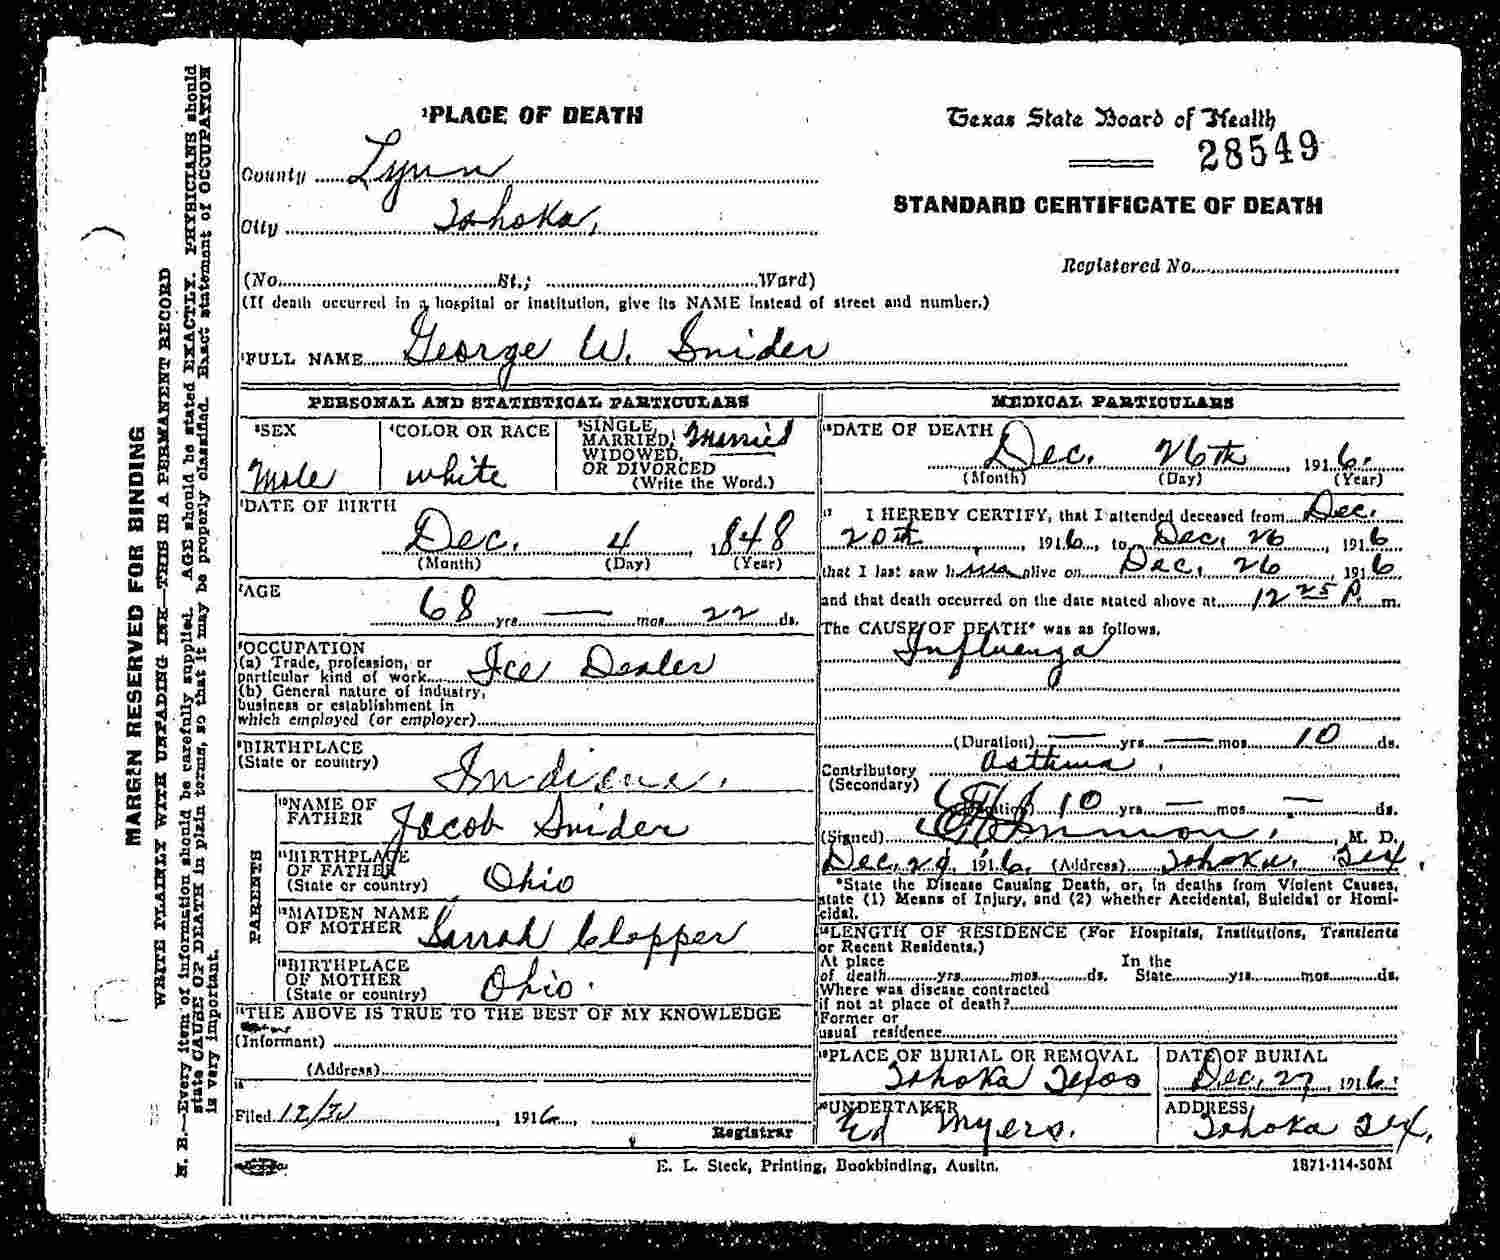 ¹PLACE OF DEATH
County Lynn
City Tahoka,
(No. St.; Ward)
(If death occurred in a hospital or institution, give its NAME instead of street and number.)
Texas State Board of Health
28549
STANDARD CERTIFICATE OF DEATH
Registered No.
²FULL NAME George W. Snider
PERSONAL AND STATISTICAL PARTICULARS
³SEX
Male
⁴COLOR OR RACE
white
⁵SINGLE,
MARRIED, Married
WIDOWED,
OR DIVORCED
(Write the Word.)
⁶DATE OF BIRTH
Dec. 4, 1848
(Month) (Day) (Year)
⁷AGE
68 yrs. — mos. 22 ds.
⁸OCCUPATION
(a) Trade, profession, or
particular kind of work Ice Dealer
(b) General nature of industry,
business or establishment in
which employed (or employer)
⁹BIRTHPLACE
(State or country)
Indiana.
PARENTS
¹⁰NAME OF
FATHER Jacob Snider
¹¹BIRTHPLACE
OF FATHER
(State or country) Ohio
¹²MAIDEN NAME
OF MOTHER Sarrah Clopper
¹³BIRTHPLACE
OF MOTHER
(State or country) Ohio.
¹⁴THE ABOVE IS TRUE TO THE BEST OF MY KNOWLEDGE
(Informant)
(Address)
¹⁵
Filed 12/31, 1916,
Registrar
MEDICAL PARTICULARS
¹⁶DATE OF DEATH
Dec. 26th, 1916.
(Month) (Day) (Year)
¹⁷ I HEREBY CERTIFY, that I attended deceased from Dec.
20th, 1916, to Dec. 26, 1916
that I last saw him alive on Dec. 26, 1916
and that death occurred on the date stated above at 12 25 P. m.
The CAUSE OF DEATH* was as follows.
Influenza
(Duration) — yrs. — mos. 10 ds.
Contributory Asthma.
(Secondary)
(Duration) 10 yrs. — mos. — ds.
(Signed) , M. D.
Dec. 29, 1916. (Address) Tahoka. Tex.
*State the Disease Causing Death, or, in deaths from Violent Causes,
state (1) Means of Injury, and (2) whether Accidental, Suicidal or Homi-
cidal.
¹⁸LENGTH OF RESIDENCE (For Hospitals, Institutions, Transients
or Recent Residents.)
At place In the
of death yrs. mos. ds. State yrs. mos. ds.
Where was disease contracted
if not at place of death?
Former or
usual residence
¹⁹PLACE OF BURIAL OR REMOVAL
Tahoka Texas
DATE OF BURIAL
Dec. 27, 1916.
²⁰UNDERTAKER
Ed Myers.
ADDRESS
Tahoka Tex.
E. L. Steck, Printing, Bookbinding, Austin.
1871-114-50M
MARGIN RESERVED FOR BINDING
WRITE PLAINLY WITH UNFADING INK—THIS IS A PERMANENT RECORD
N. B.—Every item of information should be carefully supplied. AGE should be stated EXACTLY. PHYSICIANS should
state CAUSE OF DEATH in plain terms, so that it may be properly classified. Exact statement of OCCUPATION
is very important.